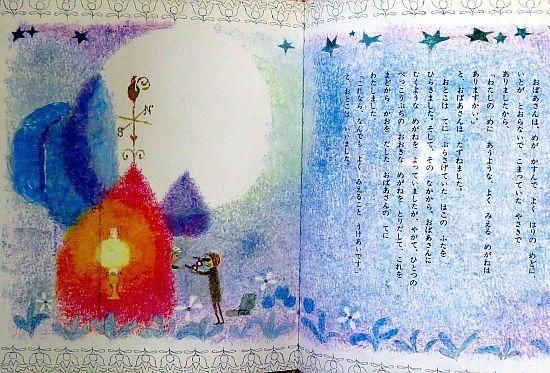 おばあさんは、めが かすんで、よく はりの めどに
いとが とおらないで こまっていた やさきで
ありましたから、
「わたしの めに あうような、よく みえる めがねは
ありますかい。」
と、おばあさんは たずねました。
おとこは てに ぶらさげていた はこの ふたを
ひらきました。そして、その なかから、おばあさんに
むくような めがねを よっていましたが、やがて、ひとつの
べっこうぶちの おおきな めがねを とりだして、これを
まどから かおを だした おばあさんの てに
わたしました。
「これなら、なんでも よく みえること うけあいです。」
と、おとこは いいました。
N
S